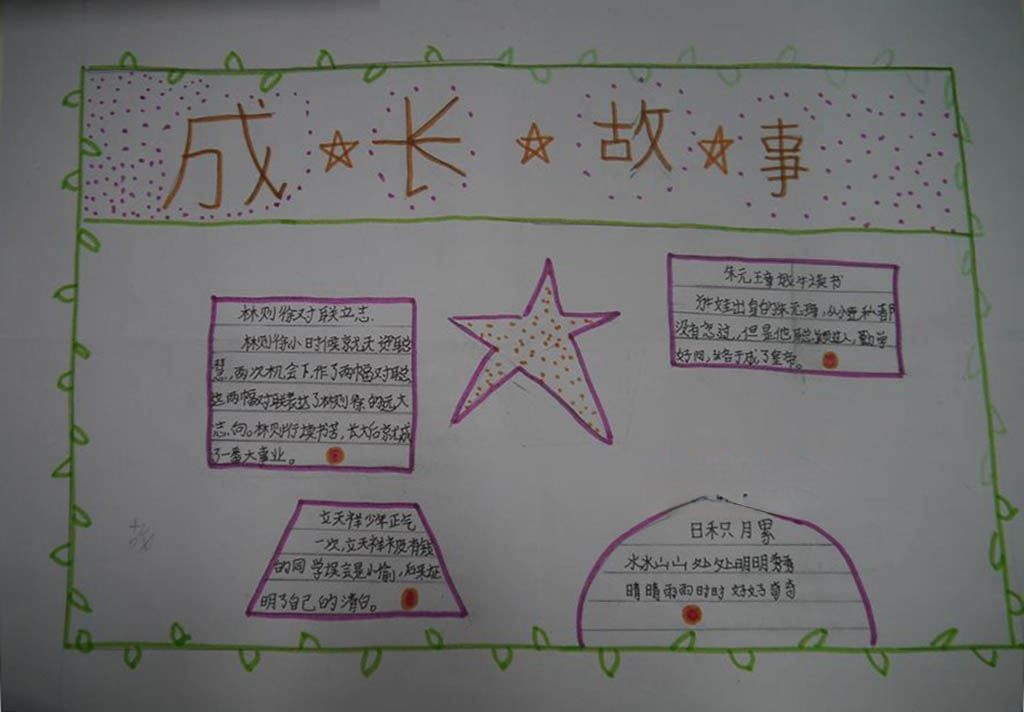 成长故事
林则徐对联立志.
林则徐小时候就天资聪
慧,两次机会下,作了两幅对联,
这两幅对联表达了林则徐的远大
志向。林则行读书苦,长大后就成
了一番大事业。
朱元璋放牛读书
没有念过,但是他聪颖过人,勤学
好问,终于成了皇帝。
文天祥少年正气
一次,文天祥被有钱
的同学误会是小偷,后来证
明了自己的清白。
日积月累
水水山山处处明明秀秀
晴晴雨雨时时好好奇奇